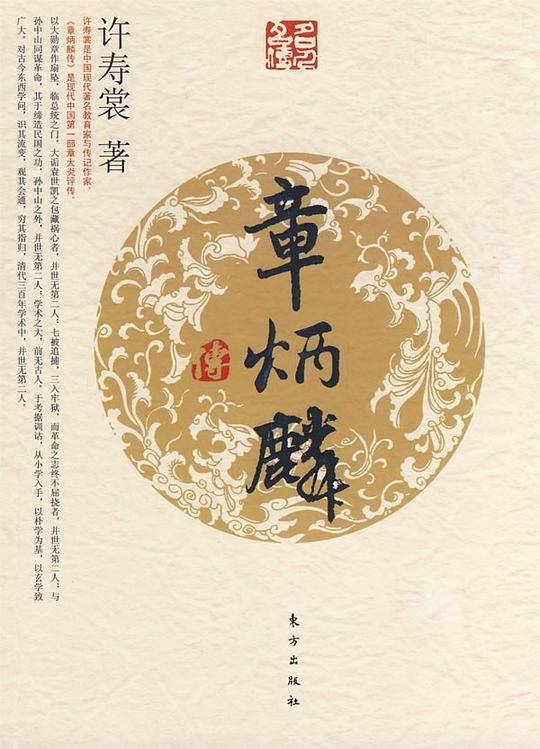 章炳麟
傳
许寿裳 著
许寿裳是中国现代著名教育家与传记作家，
《章炳麟传》是现代中国第一部章太炎评传。
以大勋章作扇坠，临总统之门，大诟袁世凯之包藏祸心者，并世无第二人；七被追捕，三入牢狱，而革命之志终不屈挠者，并世无第二人；与
孙中山同谋革命，其于缔造民国之功，孙中山之外，并世无第二人；学术之大，前无古人，于考据训诂，从小学入手，以朴学为基，以玄学致
广大。对古今东西学问，识其流变，观其会通，穷其指归，清代三百年学术中，并世无第二人。
東方出版社